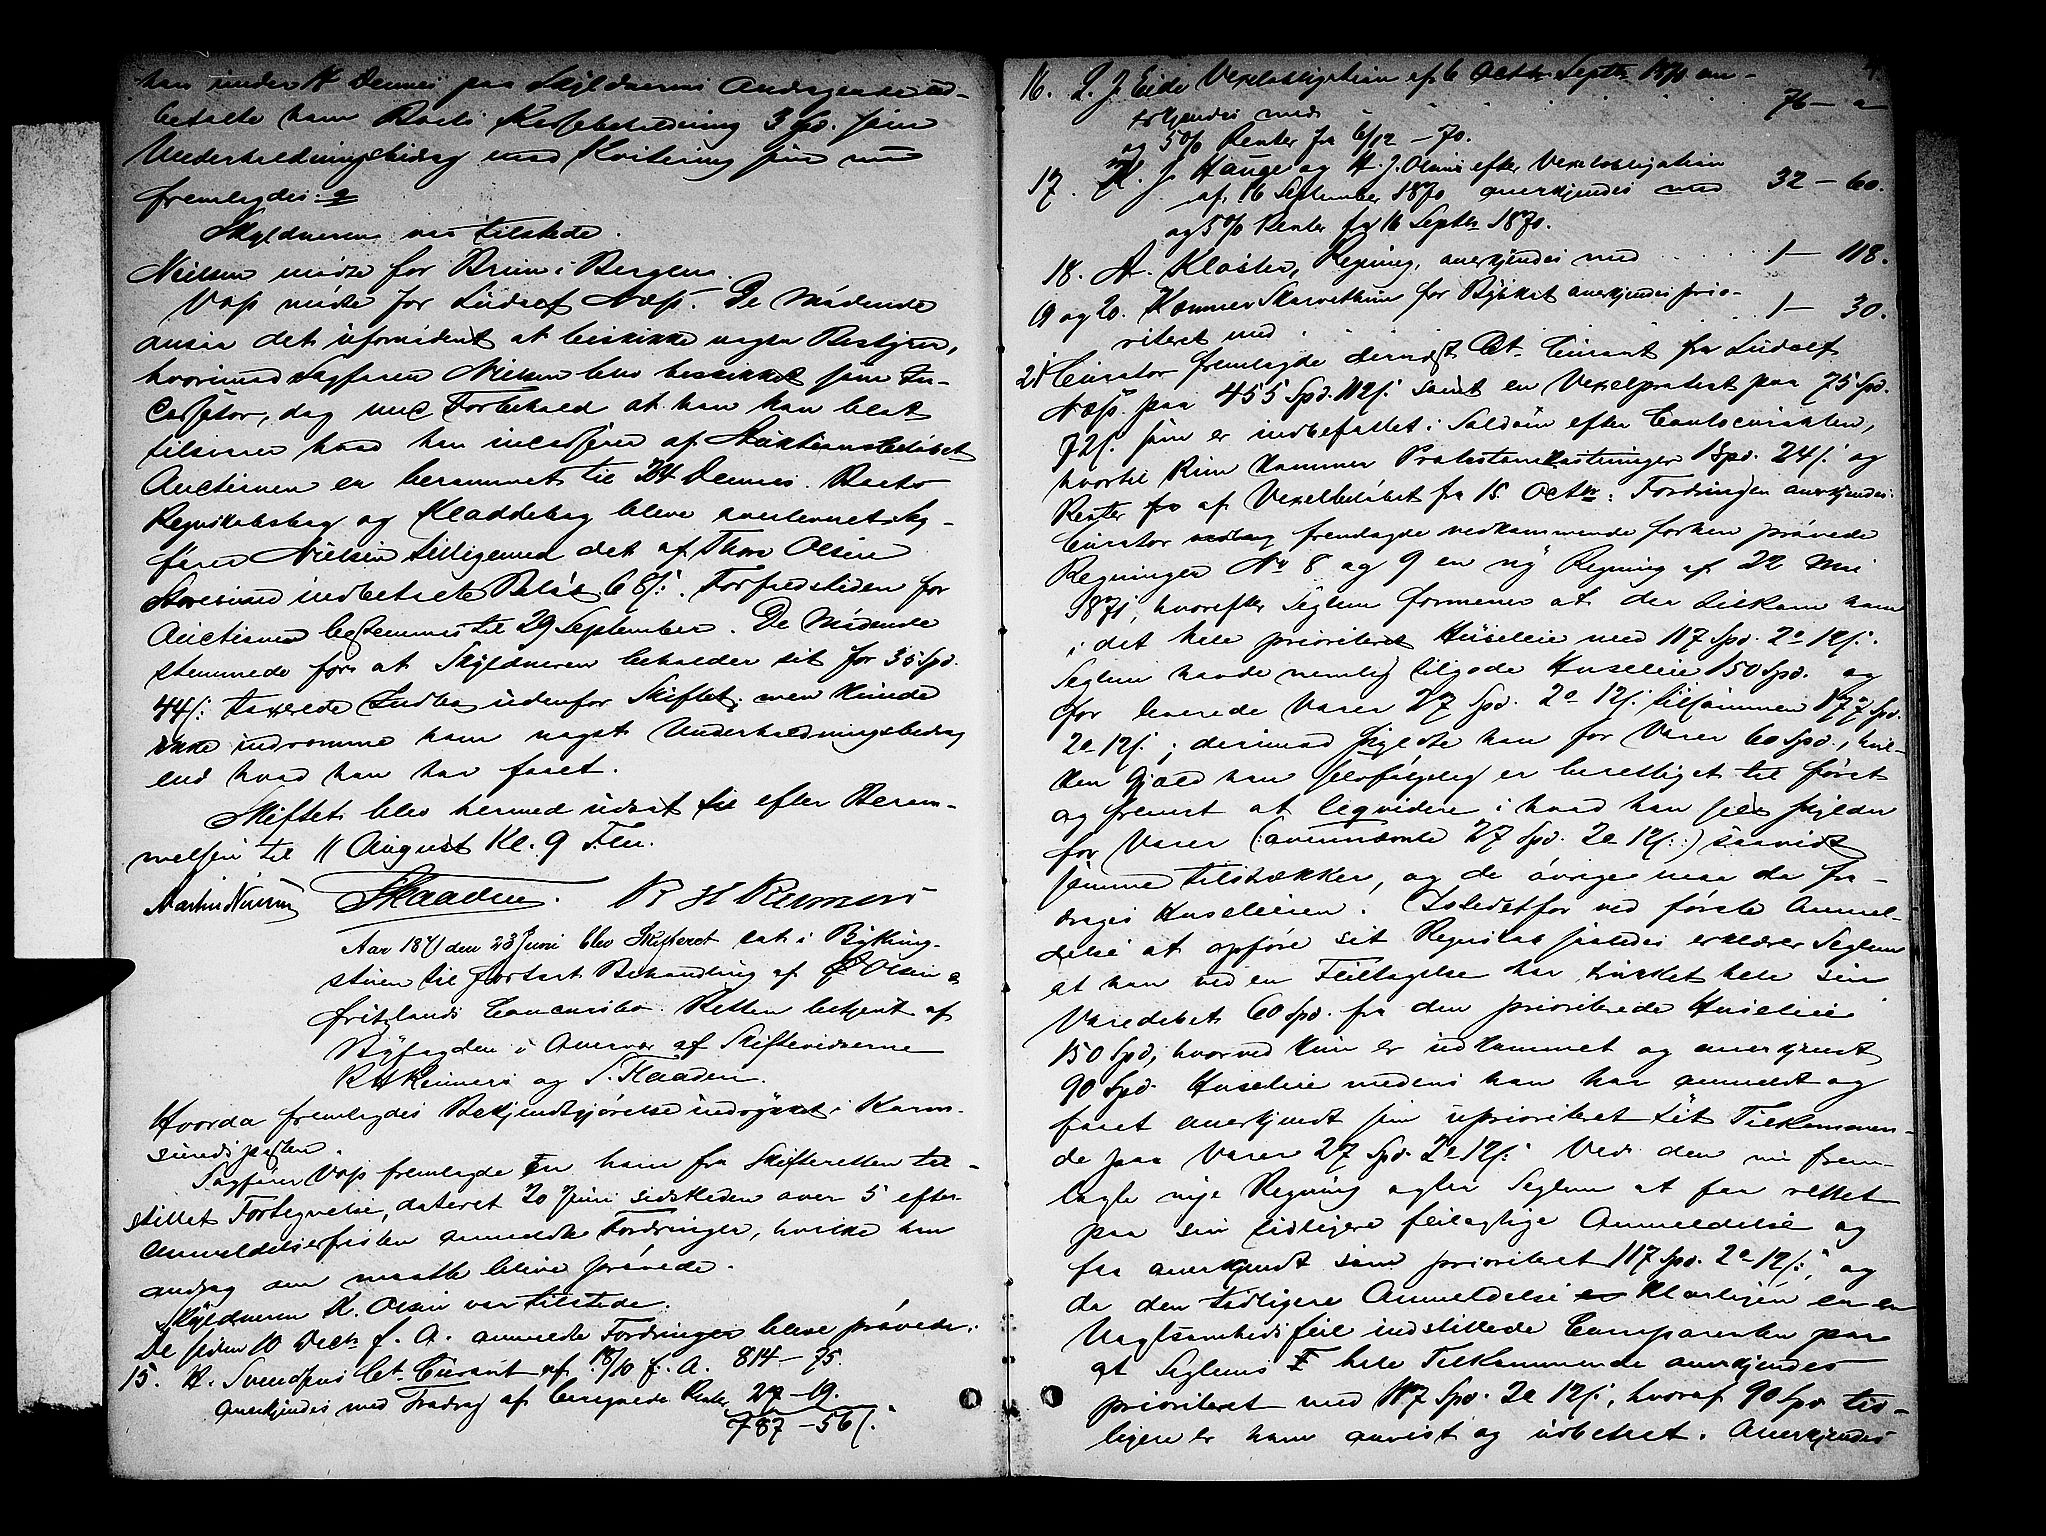 han under 14 Dennes paa Skyldnerens Andragende ud-
betalte ham Boets Kassebeholdning 3 Spd. som
Underholdningsbidrag mod Kvitering som nu
fremlagdes:
Skyldneren var tilstede.
Nielsen mødte for Brun i Bergen.
Vass mødte for Ludolf Næss. De Mødende
ansaa det ufornødent at beskikke nogen Bestyrer,
hvorimod Sagfører Nielsen blev beskikket som In-
cassator, dog med Forbehold at han kun blot
tilsvarer hvad han incasserer af Auktionsbeløbet
Auctionen er berammet til 24 Dennes. Boets
Regnskabsbog og Kladdebog bleve overleveret Sag-
fører Nielsen tilligemed det af Thore Olsen
indbetalte Beløb 68 s. Forfaldstiden for
Auctionen bestemmes til 29 September. De Mødende
stemmede for at Skyldneren beholder sit for 35 Spd.
44 s. taxerede Indbo udenfor Skiftet; men kunde
ikke indrømme ham noget Underholdningsbidrag
end hvad han har faaet.
Skiftet blev hermed udsat til efter Beram-
melsen til 11 August Kl. 9 Fm.
Martin Nielsen S Haaden. R H Reimers
Aar 1871 den 23 Juni blev Skifteret sat i Byting-
stuen til fortsat Behandling af Olsen
Fritzlands Concursbo. Retten betjent af
Byfogden i Overvær af Skiftevidnerne
R H Reimers og S. Haaden.
Hvorda fremlagdes Bekjendtgjørelse indrykket i Karm-
sundsposten.
Sagfører Vass fremlagde en ham fra Skifteretten til-
stillet Fortegnelse, dateret 20 Juni sidstleden over 5 efter
Anmeldelsesfristen anmeldte Fordringer, hvilke han
androg om maatte blive prøvede.
Skyldneren K. Olsen var tilstede.
De siden 10 Decbr f. A. anmeldte Fordringer bleve prøvede:
15. H. Svendsens Ct. Curant af 18/10 f. A. 814 – 75.
Anerkjendes med Fradrag af beregnede Renter 27 – 19.
787 – 56 s.
16. L. J. Eide Vexelobligation af 6 Septbr 1870 an-
erkjendes med 76 – "
og 5 0/0 Renter fra 6/12 – 70.
17. J. Hauge og H. J. Olsens efter Vexelobligation
af 16 September 1870 anerkjendes med 32 – 60.
og 5 0/0 Renter fra 16 Septbr 1870.
18. A. Kloster, Regning, anerkjendes med 1 – 118.
19 og 20. Kæmner Skarvethun for Bykket anerkjendes prio-
riteret med 1 – 30.
21 Curator fremlagde dernæst Ct. Curant fra Ludolf
Næss paa 455 Spd. 112 s. samt en Vexelprotest paa 75 Spd.
72 s. som er indbefattet i Saldoen efter Contocuranten,
hvortil kun kommer Protestomkostninger 1 Spd. 24 s. og
Renter af Vexelbeløbet fra 15 Octbr: Fordringen anerkjendes.
Curator fremlagde vedkommende forhen prøvede
Regninger No 8 og 9 en ny Regning af 22 Mai
1871, hvorefter Seglem formener at der tilkom ham
i det hele prioriteret Huusleie med 117 Spd. 2 o 12 s.
Seglem havde nemlig tilgode Huseleie 150 Spd. og
for leverede Varer 27 Spd. 2 o 12 s. tilsammen 177 Spd.
2 o 12 s.; derimod skyldte han for Varer 60 Spd., hvil-
ken Gjæld han selvfølgelig er berettiget til først
og fremst at liqvidere i hvad han selv skylder
for Varer (ovennævnte 27 Spd. 2 o 12 s.) saavidt
samme tilstrækker, og de øvrige maa da fra-
drages Huseleien. Istedetfor ved første Anmel-
delse at opføre sit Regnskab saaledes erklærer Seglem
at han ved en Feiltagelse har trukket hele sin
Varedebet 60 Spd. fra den prioriterede Huseleie
150 Spd, hvorved kun er udkommet og anerkjendt
90 Spd. Huseleie medens han har anmeldt og
faaet anerkjendt som uprioriteret sit Tilkommen-
de paa Varer 27 Spd. 2 o 12 s. Ved den nu frem-
lagte nye Regning agter Seglem at faa rettet
paa sin tidligere feilagtige Anmeldelse og
faa anerkjendt som prioriteret 117 Spd. 2 o 12 s., og
da den tidligere Anmeldelse klarligen er en
Uagtsomhedsfeil indstillede Comparenten paa
at Seglems hele Tilkommende anerkjendes
prioriteret med 117 Spd. 2 o 12 s., hvoraf 90 Spd tid-
ligere er ham anvist og udbetalt. Anerkjendes